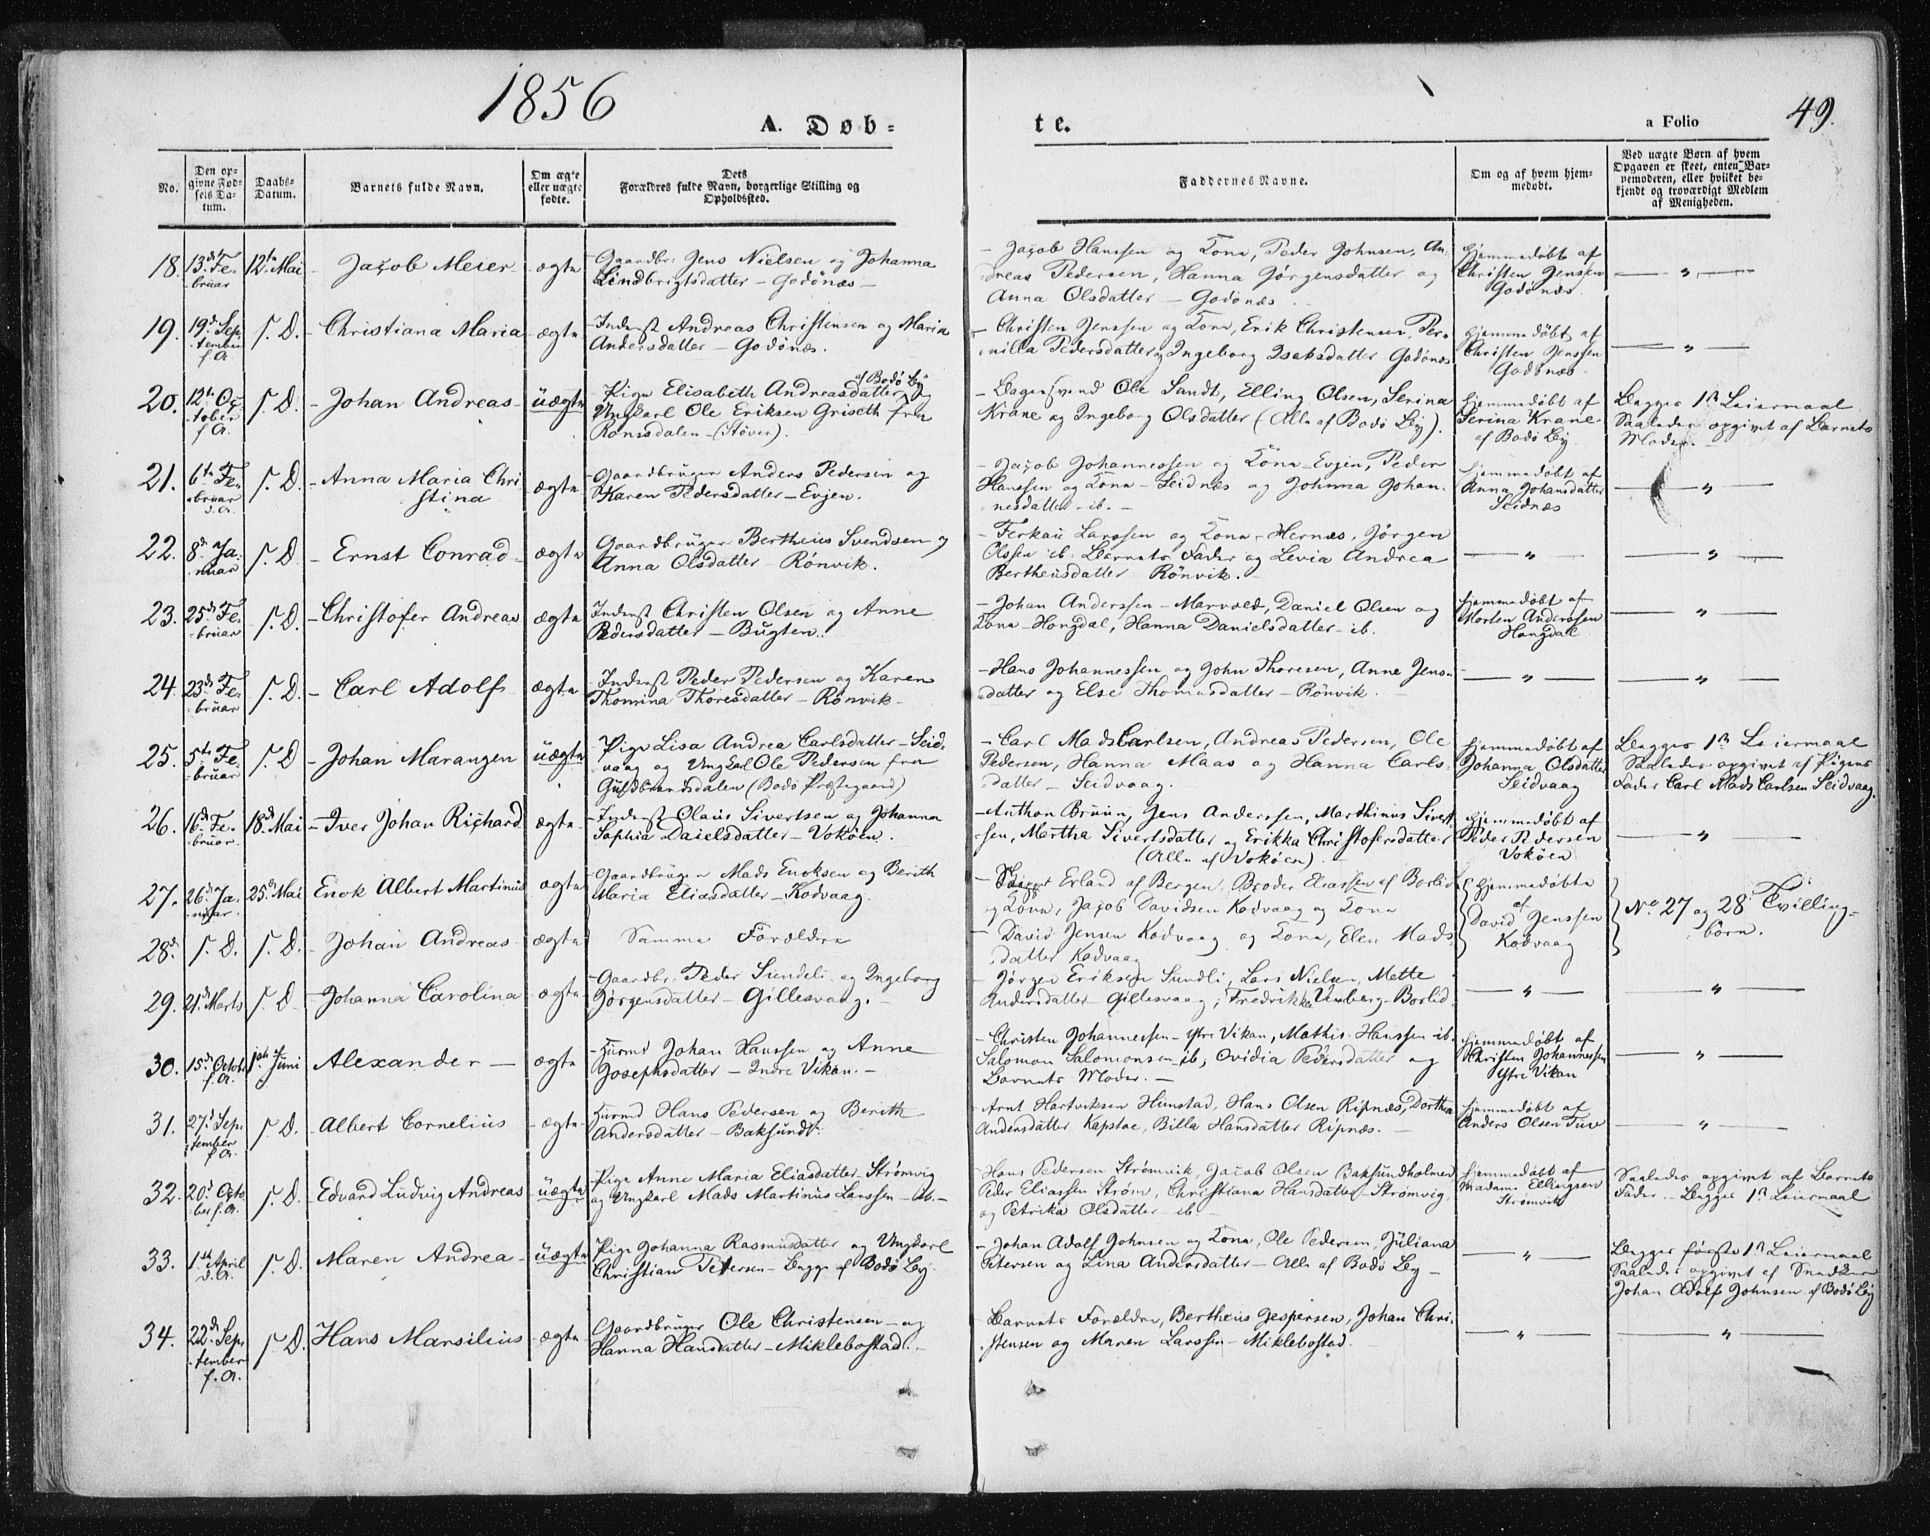 1856
A. Døb-
te.
a Folio
49.
No.
Den op-
givne Fød-
sels Da-
tum.
Daabs-
Datum.
Barnets fulde Navn.
Om ægte
eller uægte
fødte.
Dets
Forældres fulde Navn, borgerlige Stilling og
Opholdssted.
Faddernes Navne.
Om og af hvem hjem-
medøbt.
Ved uægte Børn af hvem
Opgaven er skeet, enten Bar-
nemoderen, eller hvilket be-
kjendt og troværdigt Medlem
af Menigheden.
18. 13de Fe-
bruar
12te Mai
Jacob Meier
ægte
Gaardbr: Jens Nielsen og Johanna
Lindbrigtsdatter – Godønæs –
– Jacob Hanssen og Kone, Peder Johnsen, An-
dreas Pedersen, Hanna Jørgensdatter og
Anna Olsdatter – Godønæs.
Hjemmedøbt af
Christen Jenssen
Godønæs.
— " —
19. 19de Sep-
tember
f. A.
s. D.
– Christiana Maria
ægte
– Inderst Andreas Christensen og Maria
Andersdatter – Godønæs.
– Christen Jenssen og Kone, Erik Christensen, Per-
nilla Pedersdatter og Ingeborg Isaksdatter Godønæs
Hjemmedøbt af
Christen Jenssen
Godønæs
— " —
20. 12te Oc-
tober
f. A.
s. D.
– Johan Andreas –
uægte
– Pige Elisabeth Andreasdatter af Bodø By og
Ungkarl Ole Eriksen Griseth fra
Romsdalen – (Støver).
– Bogensvend Ole Sandt, Elling Olsen, Serina
Krane og Ingeborg Olsdatter (Alle af Bodø By).
Hjemmedøbt af
Serina Krane
af Bodø By.
Begges 1ste Leiermaal
Saaledes opgivet af Barnets
Moder.
21. 6te Fe-
bruar
d. A.
s. D.
– Anna Maria Chri
stina
ægte
Gaardbruger Anders Pedersen og
Karen Pedersdatter – Evjen.
– Jacob Johannessen og Kone – Evjen, Peder
Hanssen og Kone – Seidnæs og Johnna Johan-
nesdatter – ib. –
Hjemmedøbt af
Anna Johansdatter
Seidnæs
— " —
22. 8de Ja-
nuar
s. D.
– Ernst Conrad –
ægte
Gaardbruger Bertheus Svendsen og
Anna Olsdatter – Rønvik.
– Ferkau Larssen og Kone – Hernæs, Jørgen
Olssen ib. Barnets Fader og Levia Andrea
Bertheusdatter – Rønvik. –
— " —
— " —
23. 25de Fe-
bruar
s. D.
– Christofer Andreas
ægte
Inderst Christen Olsen og Anne
Pedersdatter – Bugten.
– Johan Anderssen – Marvold, Daniel Olsen og
Kone – Hongdal, Hanna Danielsdatter – ib.
Hjemmedøbt af
Morten Anderssen
Hongdal
— " —
24. 23de Fe-
bruar
s. D.
– Carl Adolf
ægte
– Inderst Peder Pedersen og Karen
Thomina Thoresdatter – Rønvik –
– Hans Johannessen og John Thoresen, Anne Jens-
datter og Else Thomasdatter – Rønvik. –
— " —
— " —
25. 5te Fe-
bruar
s. D
– Johan Marangen
uægte
– Pige Lisa Andrea Carlsdatter – Seid-
vaag og Ungkarl Ole Pedersen fra
Gulbrandsdalen (Bodø Præstegaard)
– Carl Mads Carlsen, Andreas Pedersen, Ole
Pedersen, Hanna Maas og Hanna Carls-
datter – Seidvaag.
Hjemmedøbt af
Johanna Olsdatter
Seidvaag
Begges 1ste Leiermaal
Saaledes opgivet af Pigens
Fader Carl Mads Carlsen Seidvaag.
26. 16de Fe-
bruar.
18de Mai
– Iver Johan Richard
ægte
– Inderst Olaus Sivertsen og Johanna
Sophia Daielsdatter – Vokøen.
– Anthon Bruun, Jens Anderssen, Marthinus Sivert-
sen, Martha Sivertsdatter og Erikka Christofersdatter
(Alle af Vokøen).
Hjemmedøbt af
Peder Pedersen
Vokøen
— " —
27. 26de Ja-
nuar.
25de Mai
Enok Albert Martinus
ægte
Gaardbruger Mads Enoksen og Berith
Maria Eliasdatter – Kodvaag.
– Erland af Bergen, Broder Eliassen af Borlid
og Kone, Jacob Davidsen Kodvaag og Kone
Hjemmedøbte
af
David Jenssen
Kodvaag
No 27 og 28 Tvilling-
børn.
28. s. D. s. D. – Johan Andreas –
ægte
Samme Forældre
– David Jensen Kodvaag og Kone, Elen Mads-
datter Kodvaag
29. 21de Marts s. D. – Johanna Carolina
ægte
– Gaardbr: Peder Sundeli og Ingeborg
Jørgensdatter – Gillesvaag. –
– Jørgen Eriksen Sundli, Lars Nielsen, Mette
Andersdatter – Gillesvaag, Fredrikka Umberg – Borlid –
— " —
— " —
30. 15de Octob
f. A.
1ste Juni
Alexander –
ægte
Huusmd Johan Hanssen og Anne
Josephsdatter – Indre Vikan. –
– Christen Johannessen – Ytre Vikan, Mathis Hanssen ib.
Salomon Salomonsen – ib, Ovidia Pedersdatter og
Barnets Moder. –
Hjemmedøbt af
Christen Johannessen
Ytre Vikan
— " —
31. 27de Sep-
tember
f. A.
s. D.
– Albert Cornelius
ægte
Huusmd Hans Pedersen og Berith
Andersdatter – Baksundt.
Arnt Hartviksen Hunstad, Hans Olsen Ripnæs, Dorthea
Andersdatter Kapstoe, Billa Hansdatter Ripnæs. –
Hjemmedøbt af
Anders Olsen Tuv
— " —
32. 20de Octo-
ber f. A.
s. D.
Edvard Ludvig Andreas
uægte
Pige Anne Maria Eliasdatter – Strømvig
og Ungkarl Mads Martinus Larssen – ib. –
Hans Pedersen Strømvik, Jacob Olsen Baksundholmen
Peder Eliassen Strøm, Christiana Hansdatter – Strømvig
og Petrika Olsdatter – ib. –
Hjemmedøbt af
Madame Ellingsen
Strømvik
Saaledes opgivet af Barnets
Fader – Begges 1ste Leiermaal
33. 1ste April
d. A.
s. D.
Maren Andrea –
uægte
Pige Johanna Rasmusdatter og Ungkarl
Christian Petersen – Begge af Bodø By.
– Johan Adolf Johnsen og Kone, Ole Pedersen Juliana
Petersen og Lina Andersdatter – Alle af Bodø By –
— " —
Begges første 1ste Leiermaal
Saaledes opgivet af Snedker
Johan Adolf Johnsen af Bodø By
34. 22de Sep-
tember
f. A.
s. D.
Hans Marsilius
ægte
Gaardbruger Ole Christensen – og
Hanna Hansdatter – Miklebostad. –
– Barnets Forældre, Bertheus Jespersen, Johan Chri-
stensen og Maren Larssen – Miklebostad.
— " —
— " —